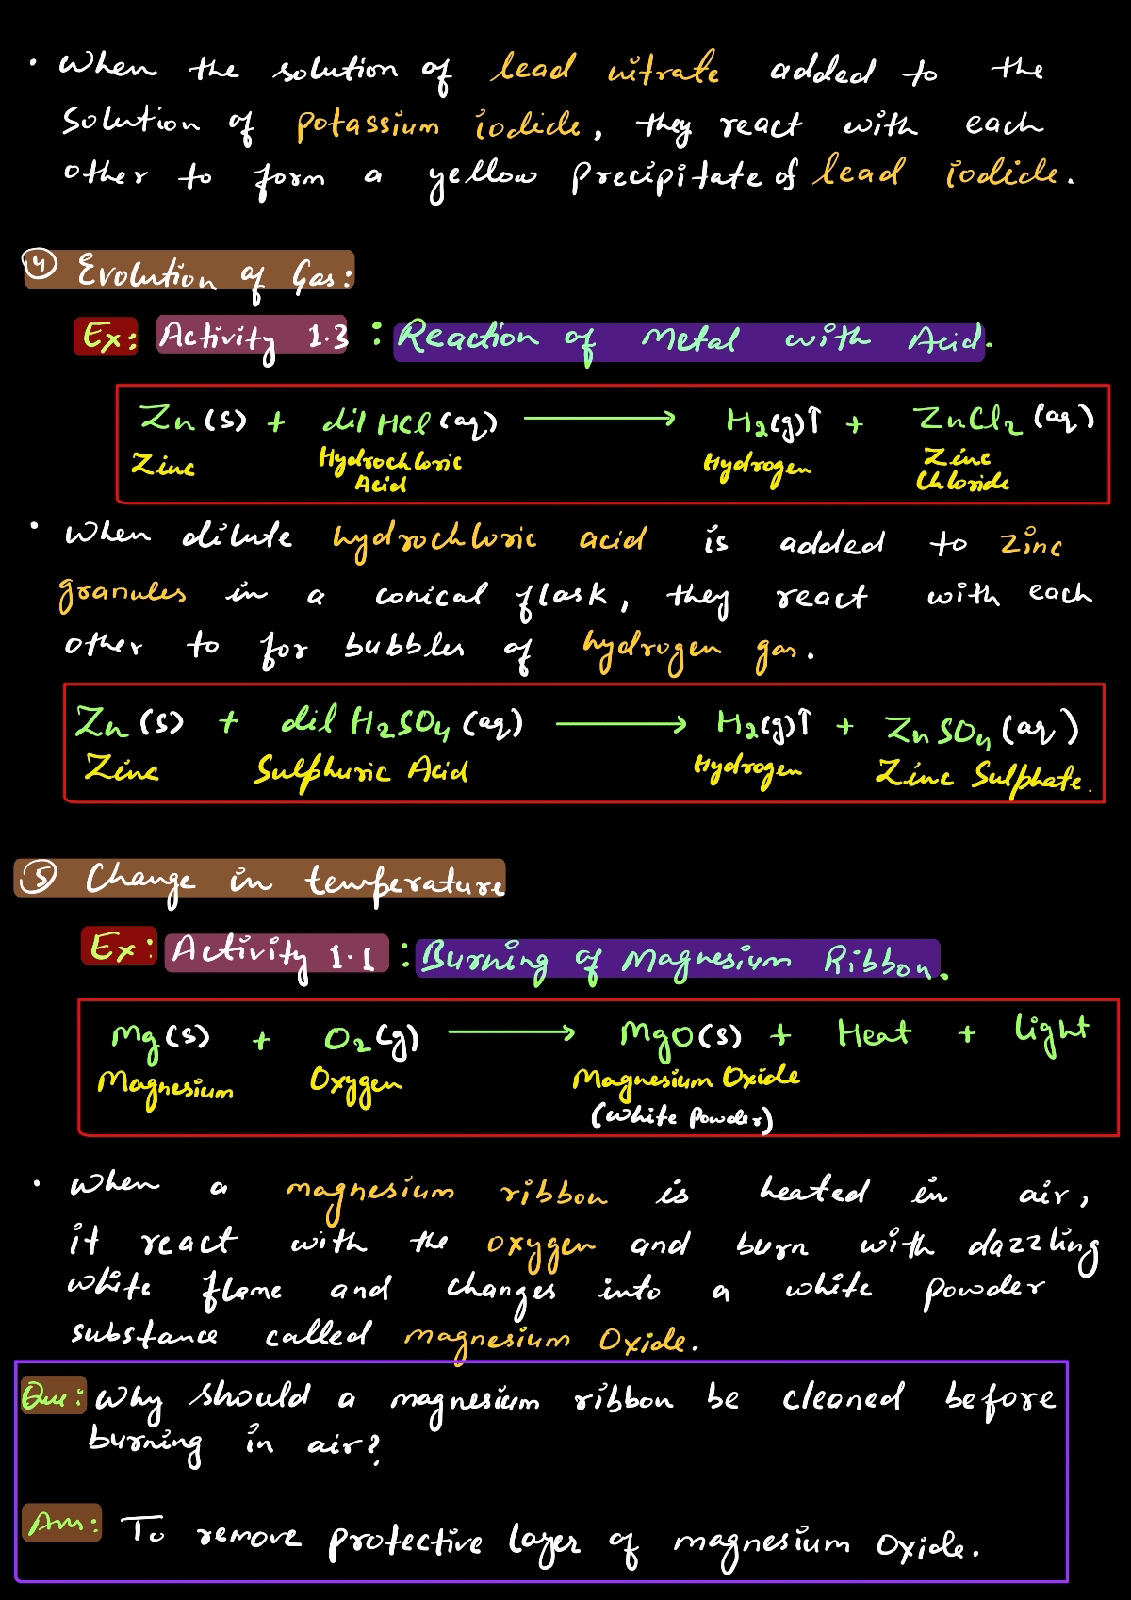 • When the solution of lead nitrate added to the
solution of potassium iodide, they react with each
other to form a yellow precipitate of lead iodide.
④ Evolution of Gas:
Ex: Activity 1.3 : Reaction of Metal with Acid.
Zn(s) + dil HCl(aq) ⟶ H₂(g)↑ + ZnCl₂(aq)
Zinc Hydrochloric Acid Hydrogen Zinc Chloride
• When dilute hydrochloric acid is added to zinc
granules in a conical flask, they react with each
other to for bubbles of hydrogen gas.
Zn(s) + dil H₂SO₄(aq) ⟶ H₂(g)↑ + ZnSO₄(aq)
Zinc Sulphuric Acid Hydrogen Zinc Sulphate.
⑤ Change in temperature
Ex: Activity 1.1 : Burning of Magnesium Ribbon.
Mg(s) + O₂(g) ⟶ MgO(s) + Heat + light
Magnesium Oxygen Magnesium Oxide
(white powder)
• When a magnesium ribbon is heated in air,
it react with the oxygen and burn with dazzling
white flame and changes into a white powder
substance called magnesium Oxide.
Que: Why should a magnesium ribbon be cleaned before
burning in air?
Ans: To remove protective layer of magnesium oxide.